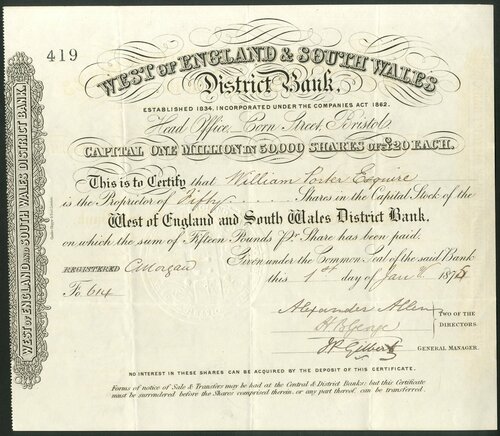 419
WEST OF ENGLAND & SOUTH WALES
District Bank.
ESTABLISHED 1834, INCORPORATED UNDER THE COMPANIES ACT 1862.
Head Office, Corn Street, Bristol.
CAPITAL ONE MILLION IN 50,000 SHARES OF £20 EACH.
This is to Certify that William Porter Esquire
is the Proprietor of Fifty Shares in the Capital Stock of the
West of England and South Wales District Bank.
on which the sum of Fifteen Pounds Pr Share has been paid.
REGISTERED C Morgan Given under the Common Seal of the said Bank
Fo. 614 this 1st day of Jany 1875
Alexander Allen
H B George
TWO OF THE DIRECTORS.
J P Gilbert GENERAL MANAGER.
NO INTEREST IN THESE SHARES CAN BE ACQUIRED BY THE DEPOSIT OF THIS CERTIFICATE.
Forms of notice of Sale & Transfers may be had at the Central & District Banks; but this Certificate
must be surrendered before the Shares comprised therein, or any part thereof, can be transferred.
WEST OF ENGLAND AND SOUTH WALES DISTRICT BANK.